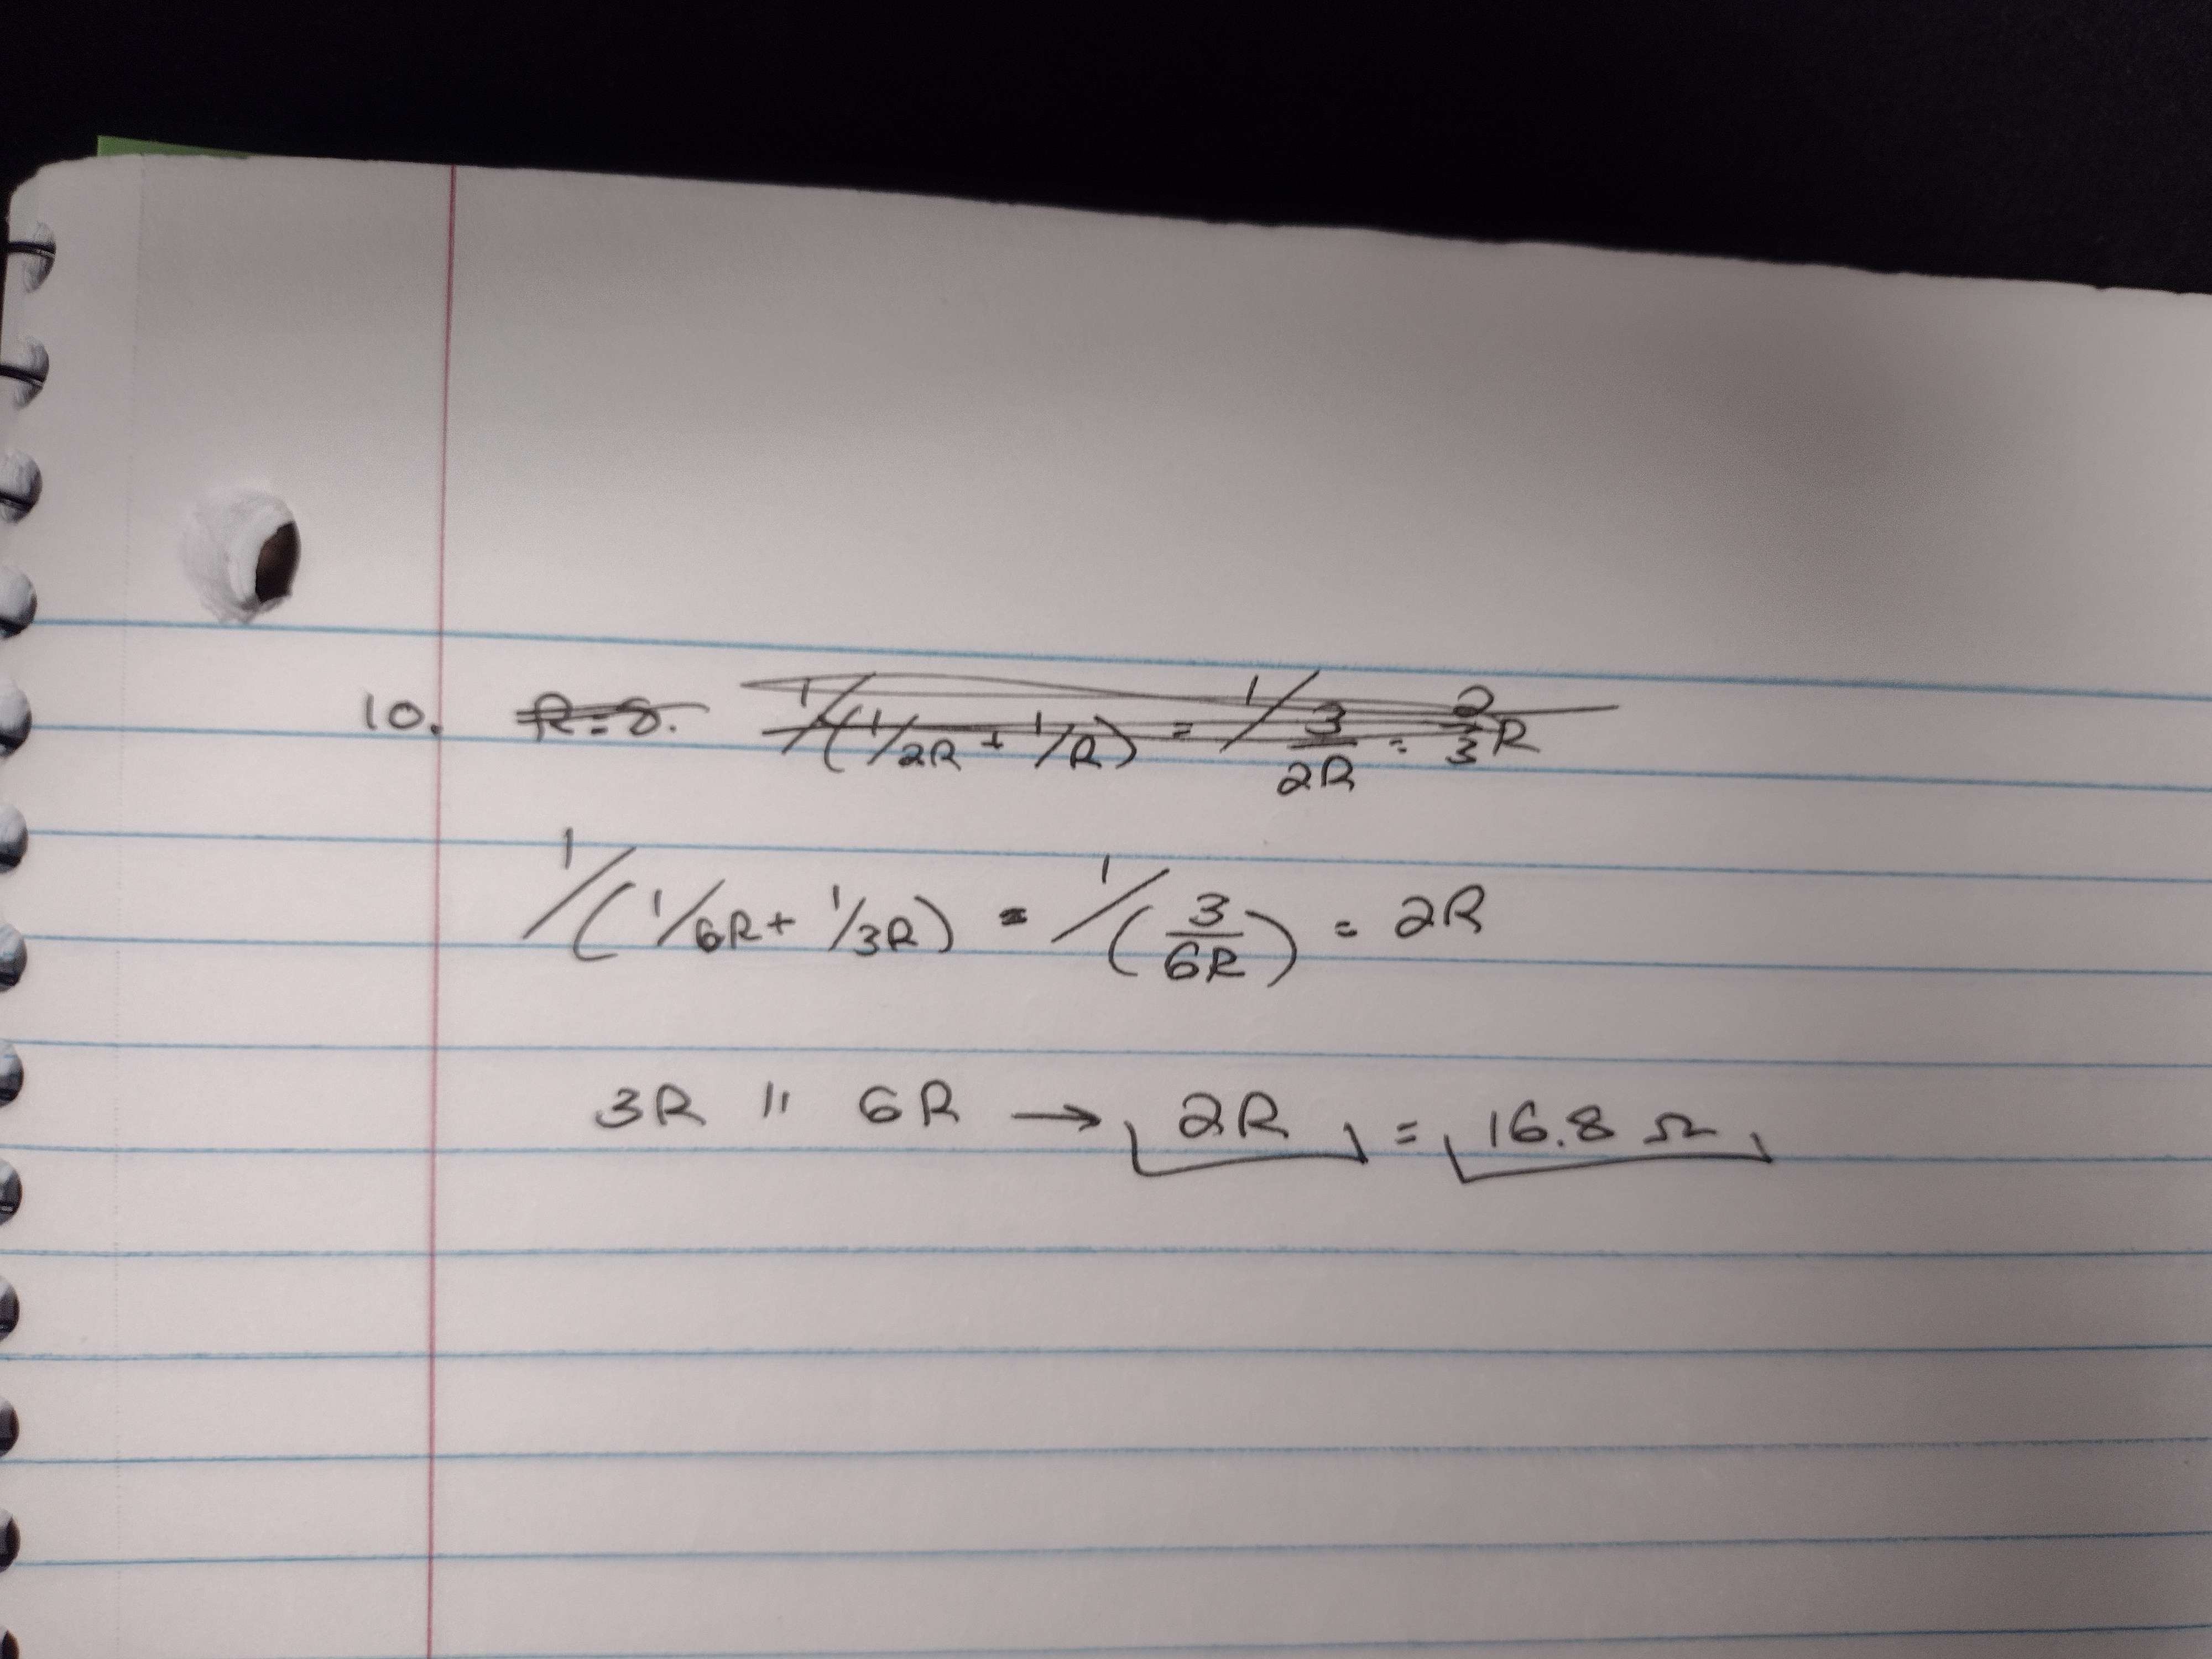 10. R=8. 1/(1/2R + 1/R) = 1/3/2R = 2/3 R
1/(1/6R + 1/3R) = 1/(3/6R) = 2R
3R || 6R → 2R = 16.8 Ω